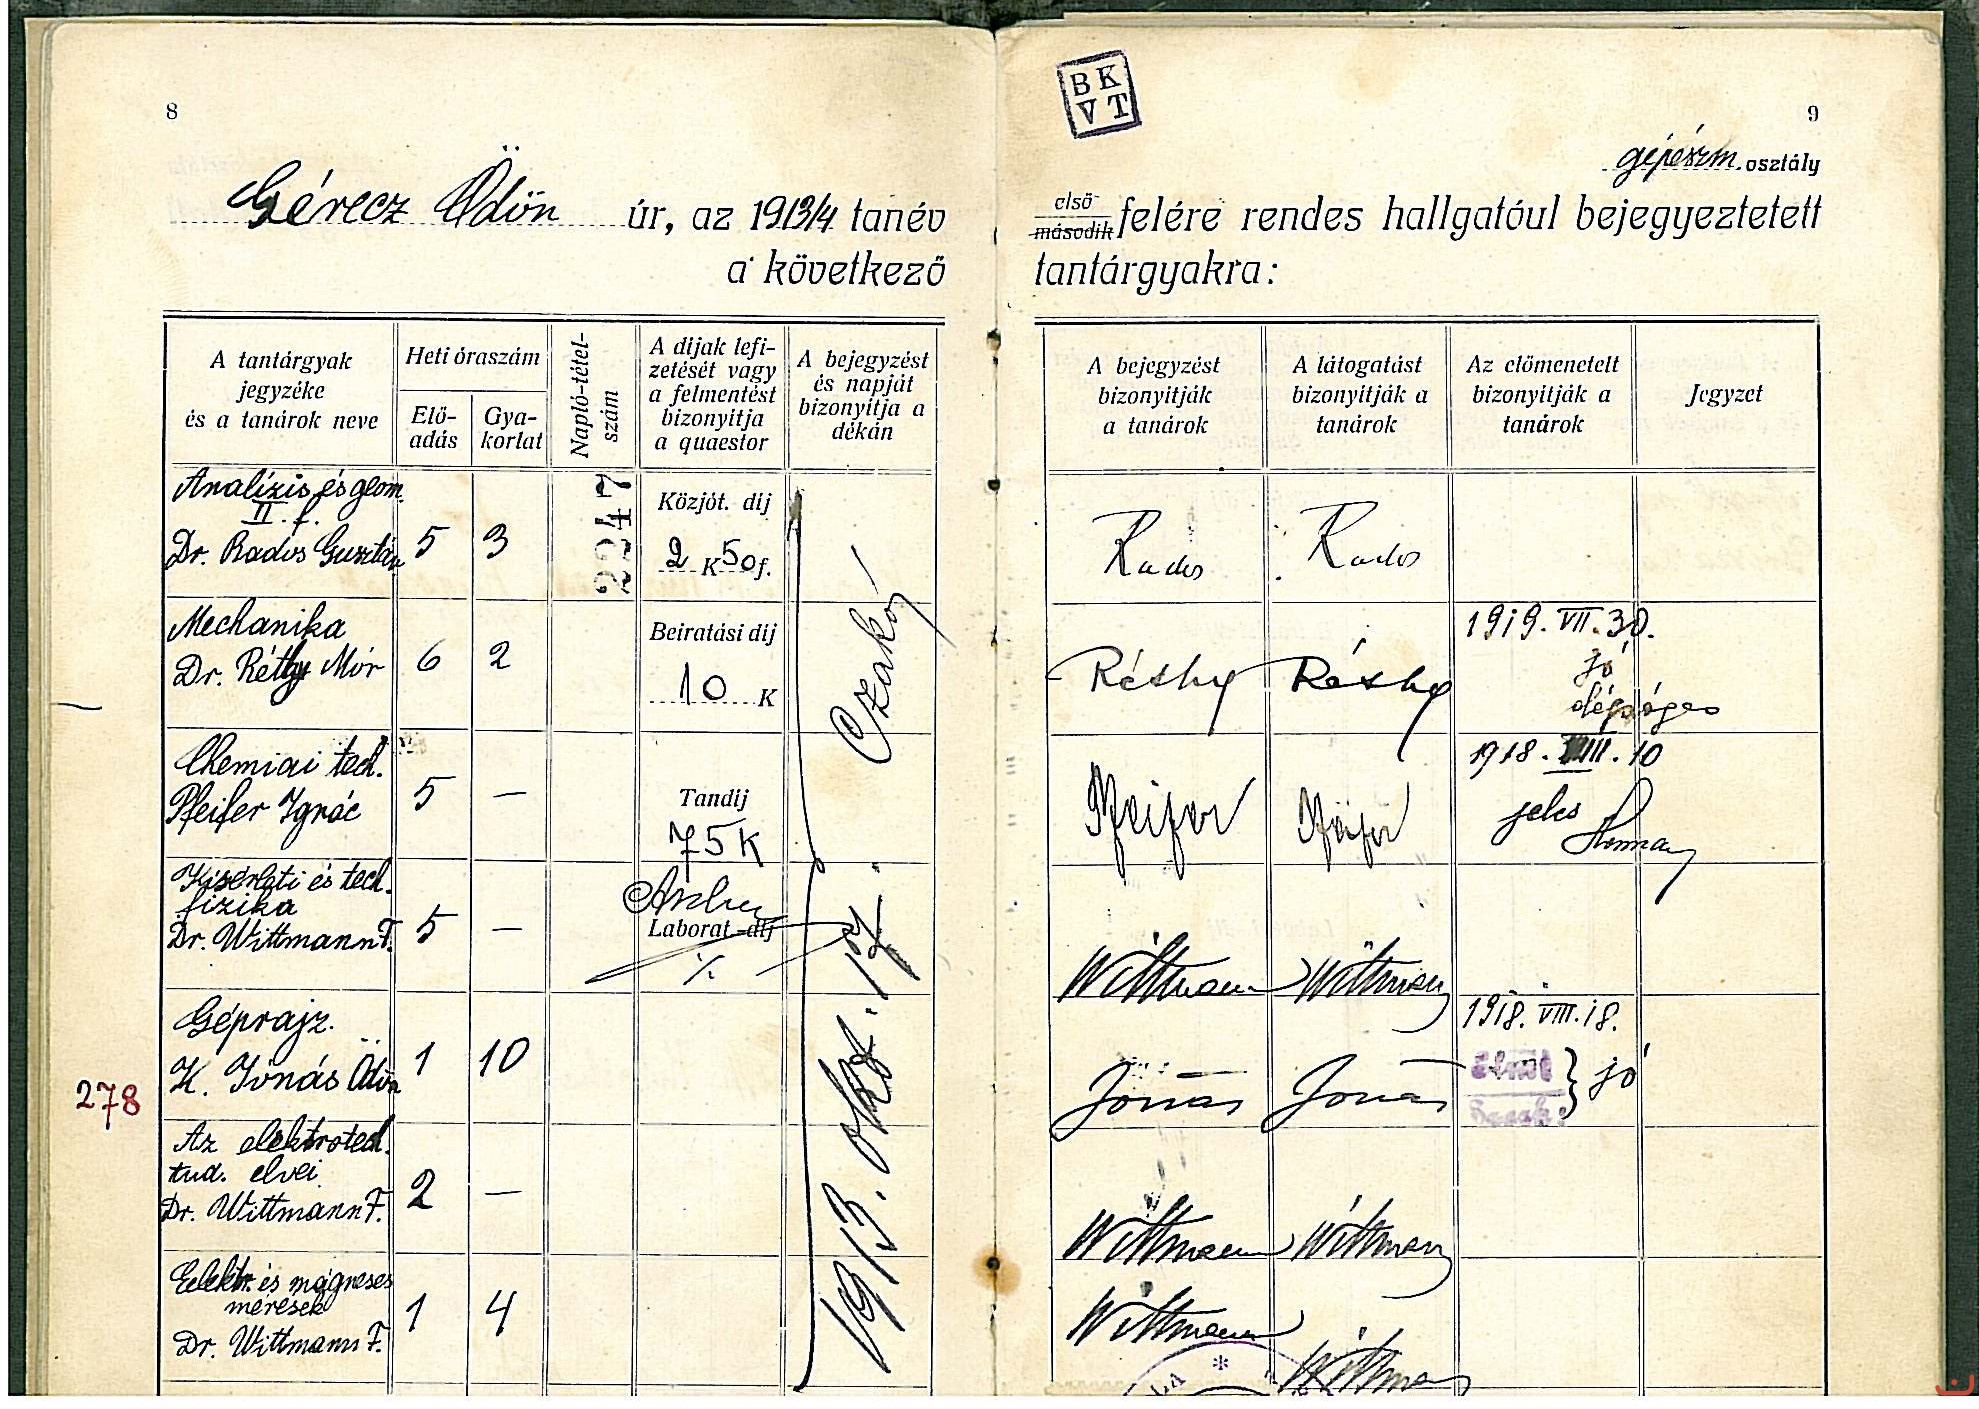 8
Gérecz Ödön úr, az 1913/4 tanév
a következő
A tantárgyak
jegyzéke
és a tanárok neve
Heti óraszám
Elő-
adás
Gya-
korlat
Napló-tétel-
szám
A díjak lefi-
zetését vagy
a felmentést
bizonyítja
a quaestor
A bejegyzést
és napját
bizonyítja a
dékán
Analízis és geom.
II. f.
Dr. Rados Gusztáv
5
3
22247
Közjót. díj
2 K 50 f.
Mechanika
Dr. Réthy Mór
6
2
Beiratási díj
10 K
Czakó
Chemiai tech.
Pfeifer Ignác
5
—
Tandíj
75 K
Kisérleti és tech.
fizika
Dr. Wittmann F.
5
—
Laborat.-díj
1913. okt. 17.
Géprajz.
K. Jónás Ödön
1
10
278
Az elektrotech.
tud. elvei
Dr. Wittmann F.
2
—
Eelektr. és mágneses
mérések
Dr. Wittmann F.
1
4
BK
VT
9
gépészm. osztály
első
második felére rendes hallgatóul bejegyeztetett
tantárgyakra:
A bejegyzést
bizonyítják
a tanárok
A látogatást
bizonyítják a
tanárok
Az előmenetelt
bizonyítják a
tanárok
Jegyzet
Rados
Rados
Réthy
Réthy
1919. VII. 30.
jó
Pfeifer
Pfeifer
1918. VIII. 10
jeles
Wittmann
Wittmann
Jónás
Jónás
1918. VIII. 18.
jó
Wittmann
Wittmann
Wittmann
Wittmann